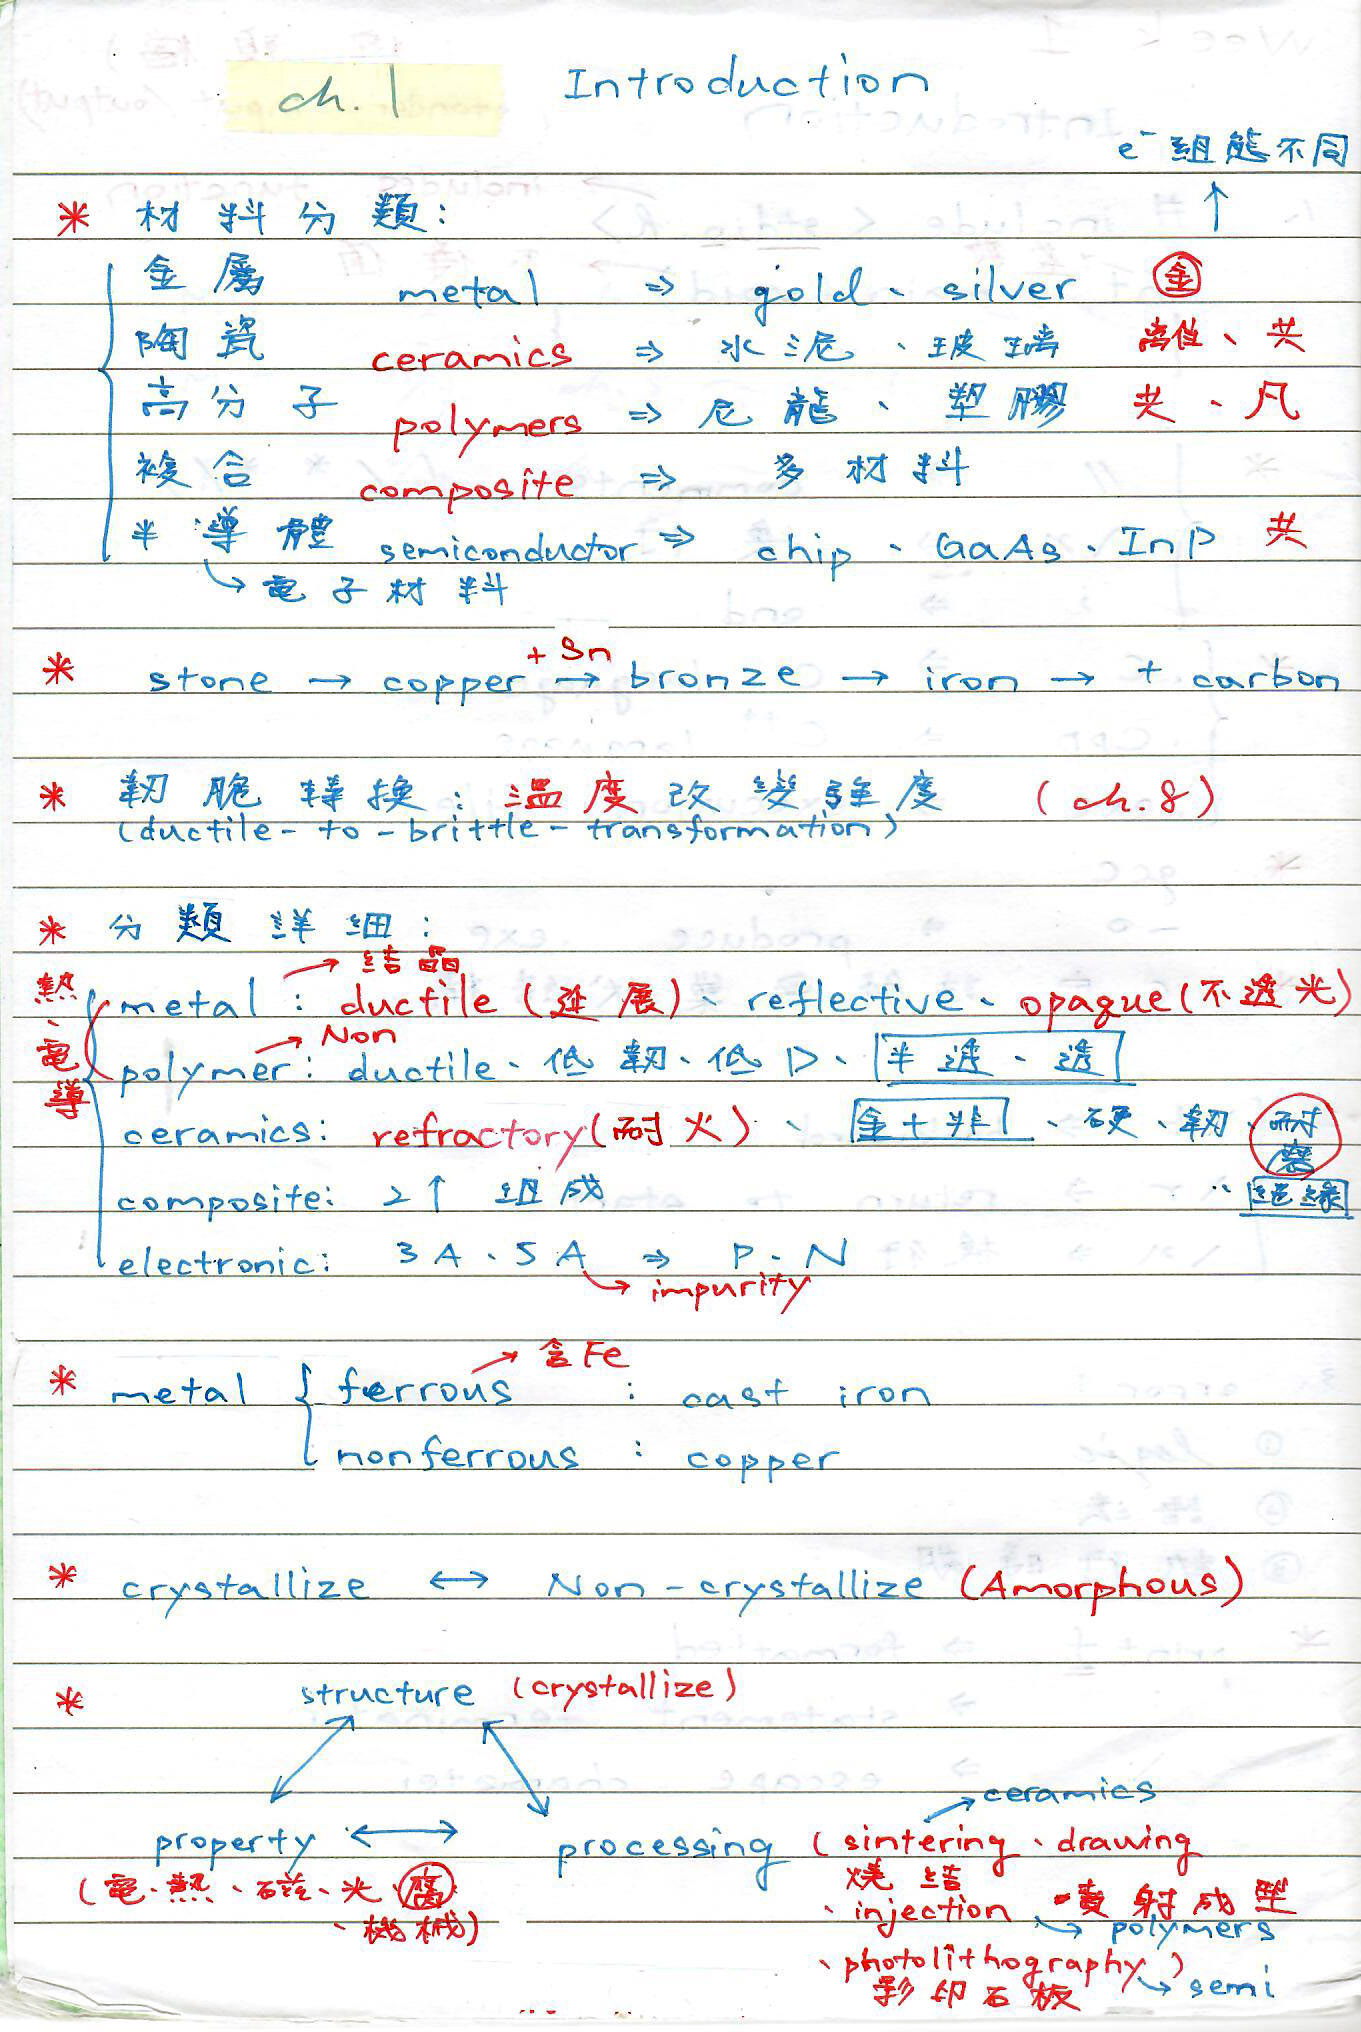 ch. 1 Introduction
e⁻ 組態不同
↑
* 材料分類:
金屬 metal ⇒ gold、silver 金
陶瓷 ceramics ⇒ 水泥、玻璃 離位、共
高分子 polymers ⇒ 尼龍、塑膠 共、凡
複合 composite ⇒ 多材料
半導體 semiconductor ⇒ chip、GaAs、InP 共
↳ 電子材料
* stone → copper +Sn → bronze → iron → + carbon
* 韌脆轉換: 溫度改變強度 (ch.8)
(ductile-to-brittle-transformation)
* 分類詳細:
→ 結晶
熱、電導
metal: ductile (延展)、reflective、opague(不透光)
→ Non
polymer: ductile、低韌、低ρ、半透、透
ceramics: refractory(耐火)、金+非、硬、韌、耐磨
composite: 2↑ 組成 、絕緣
electronic: 3A、5A ⇒ P、N
→ impurity
→ 含Fe
* metal { ferrous : cast iron
nonferrous : copper
* crystallize ↔ Non-crystallize (Amorphous)
* structure (crystallize)
→ ceramics
property ↔ processing (sintering、drawing
(電、熱、磁、光、腐 燒結
、機械) 、injection 噴射成型
→ polymers
、photolithography)
影印石板 → semi